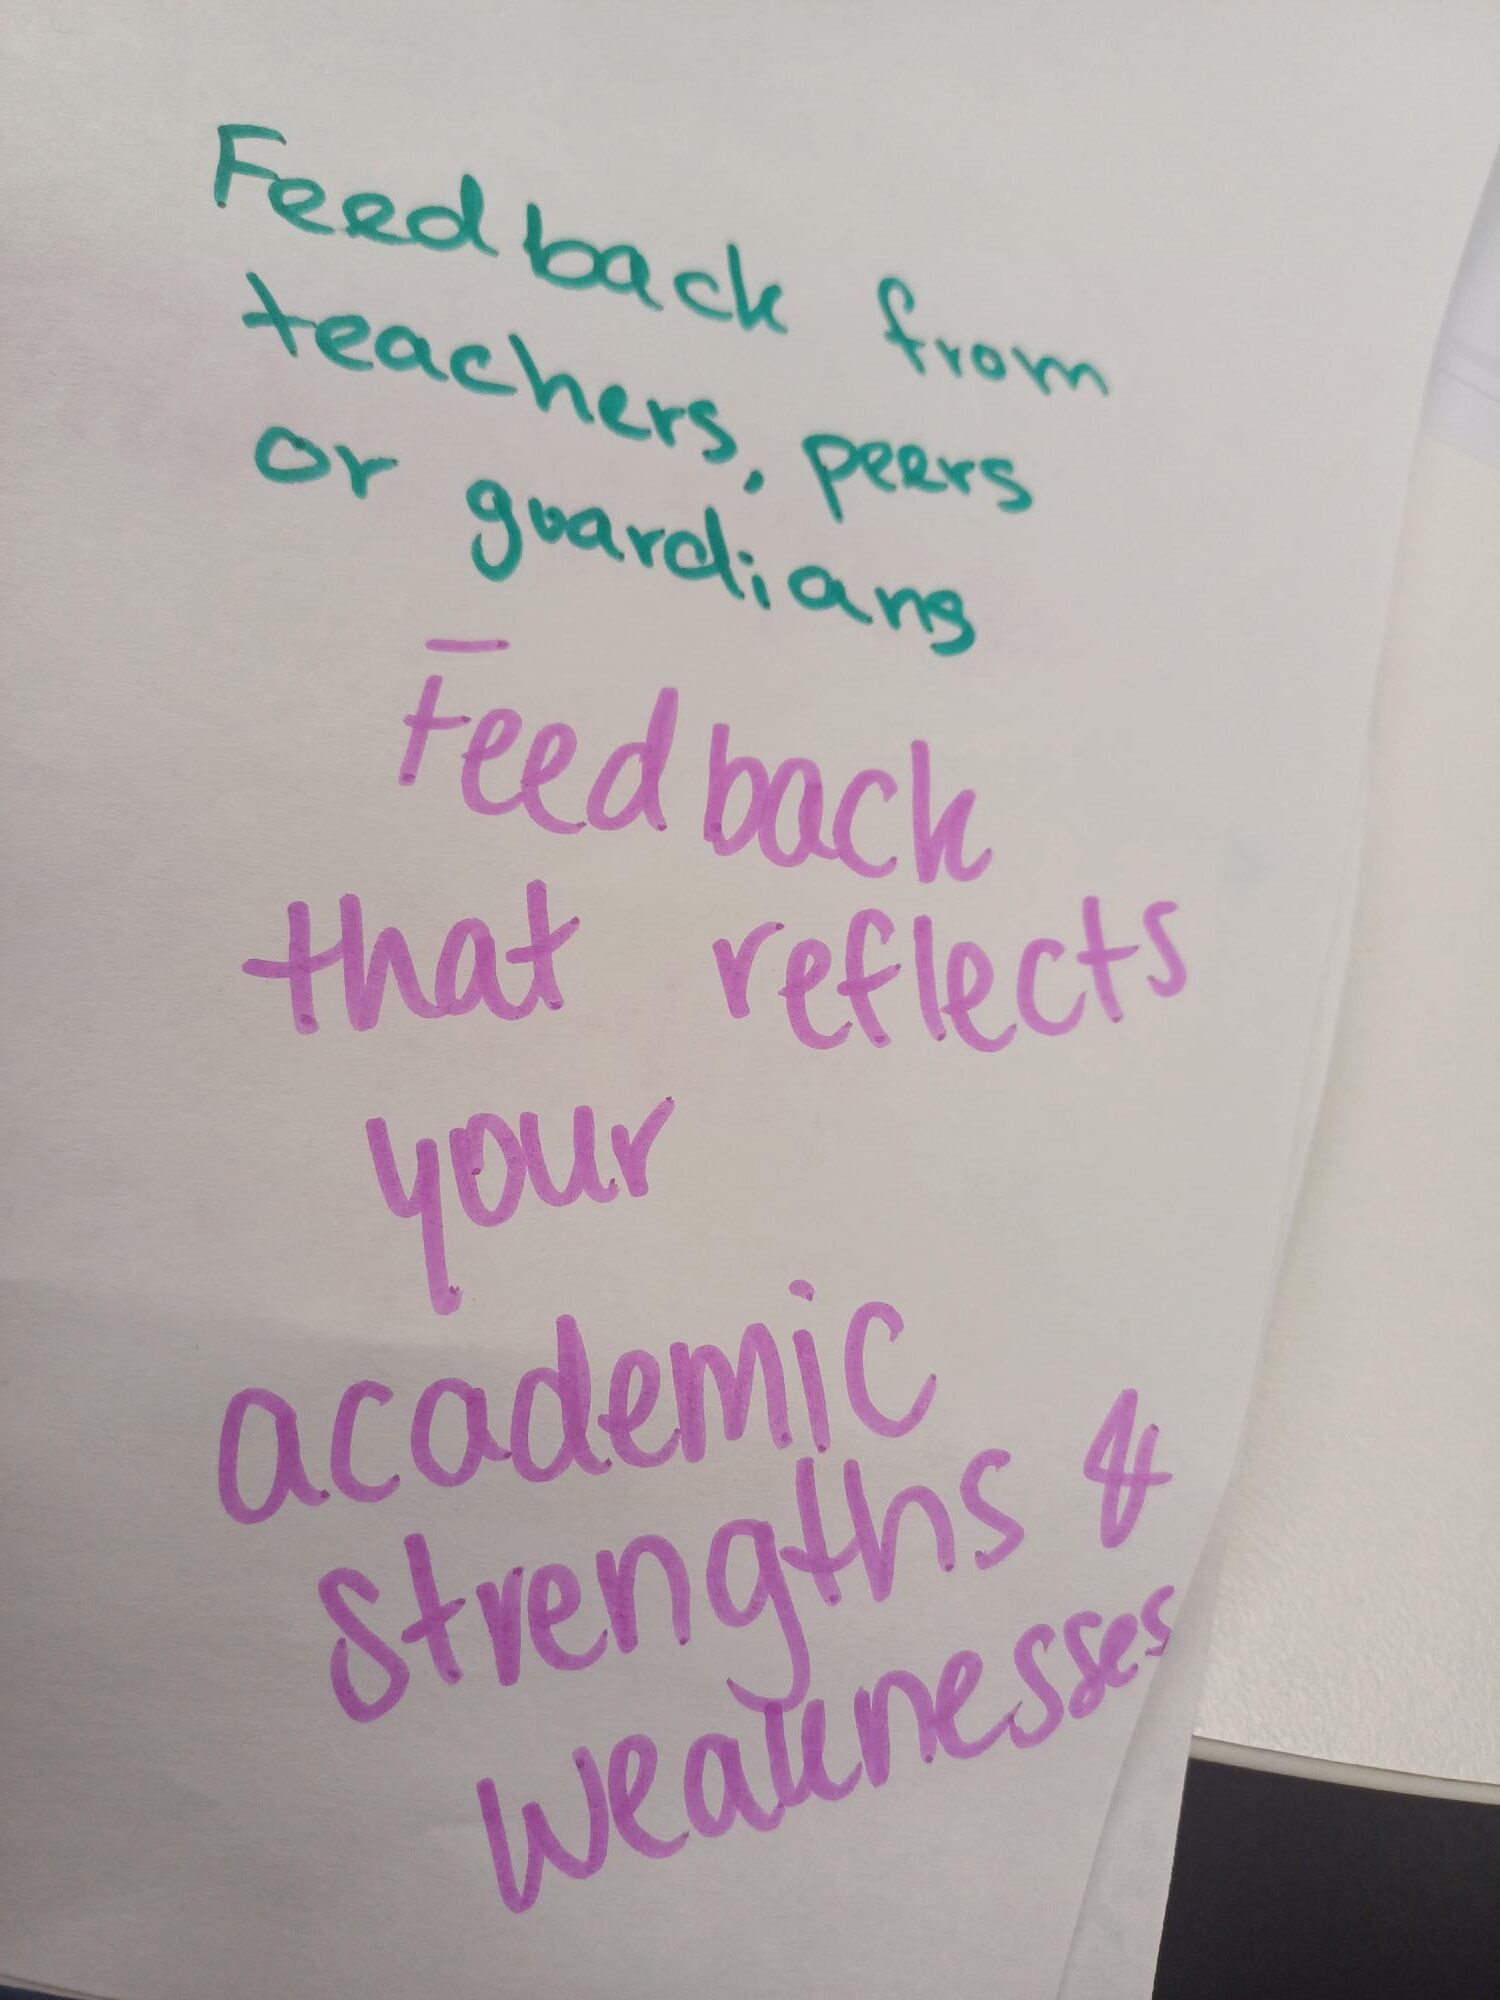 Feedback from
teachers, peers
or guardians
Feedback
that reflects
your
academic
strengths &
weaknesses